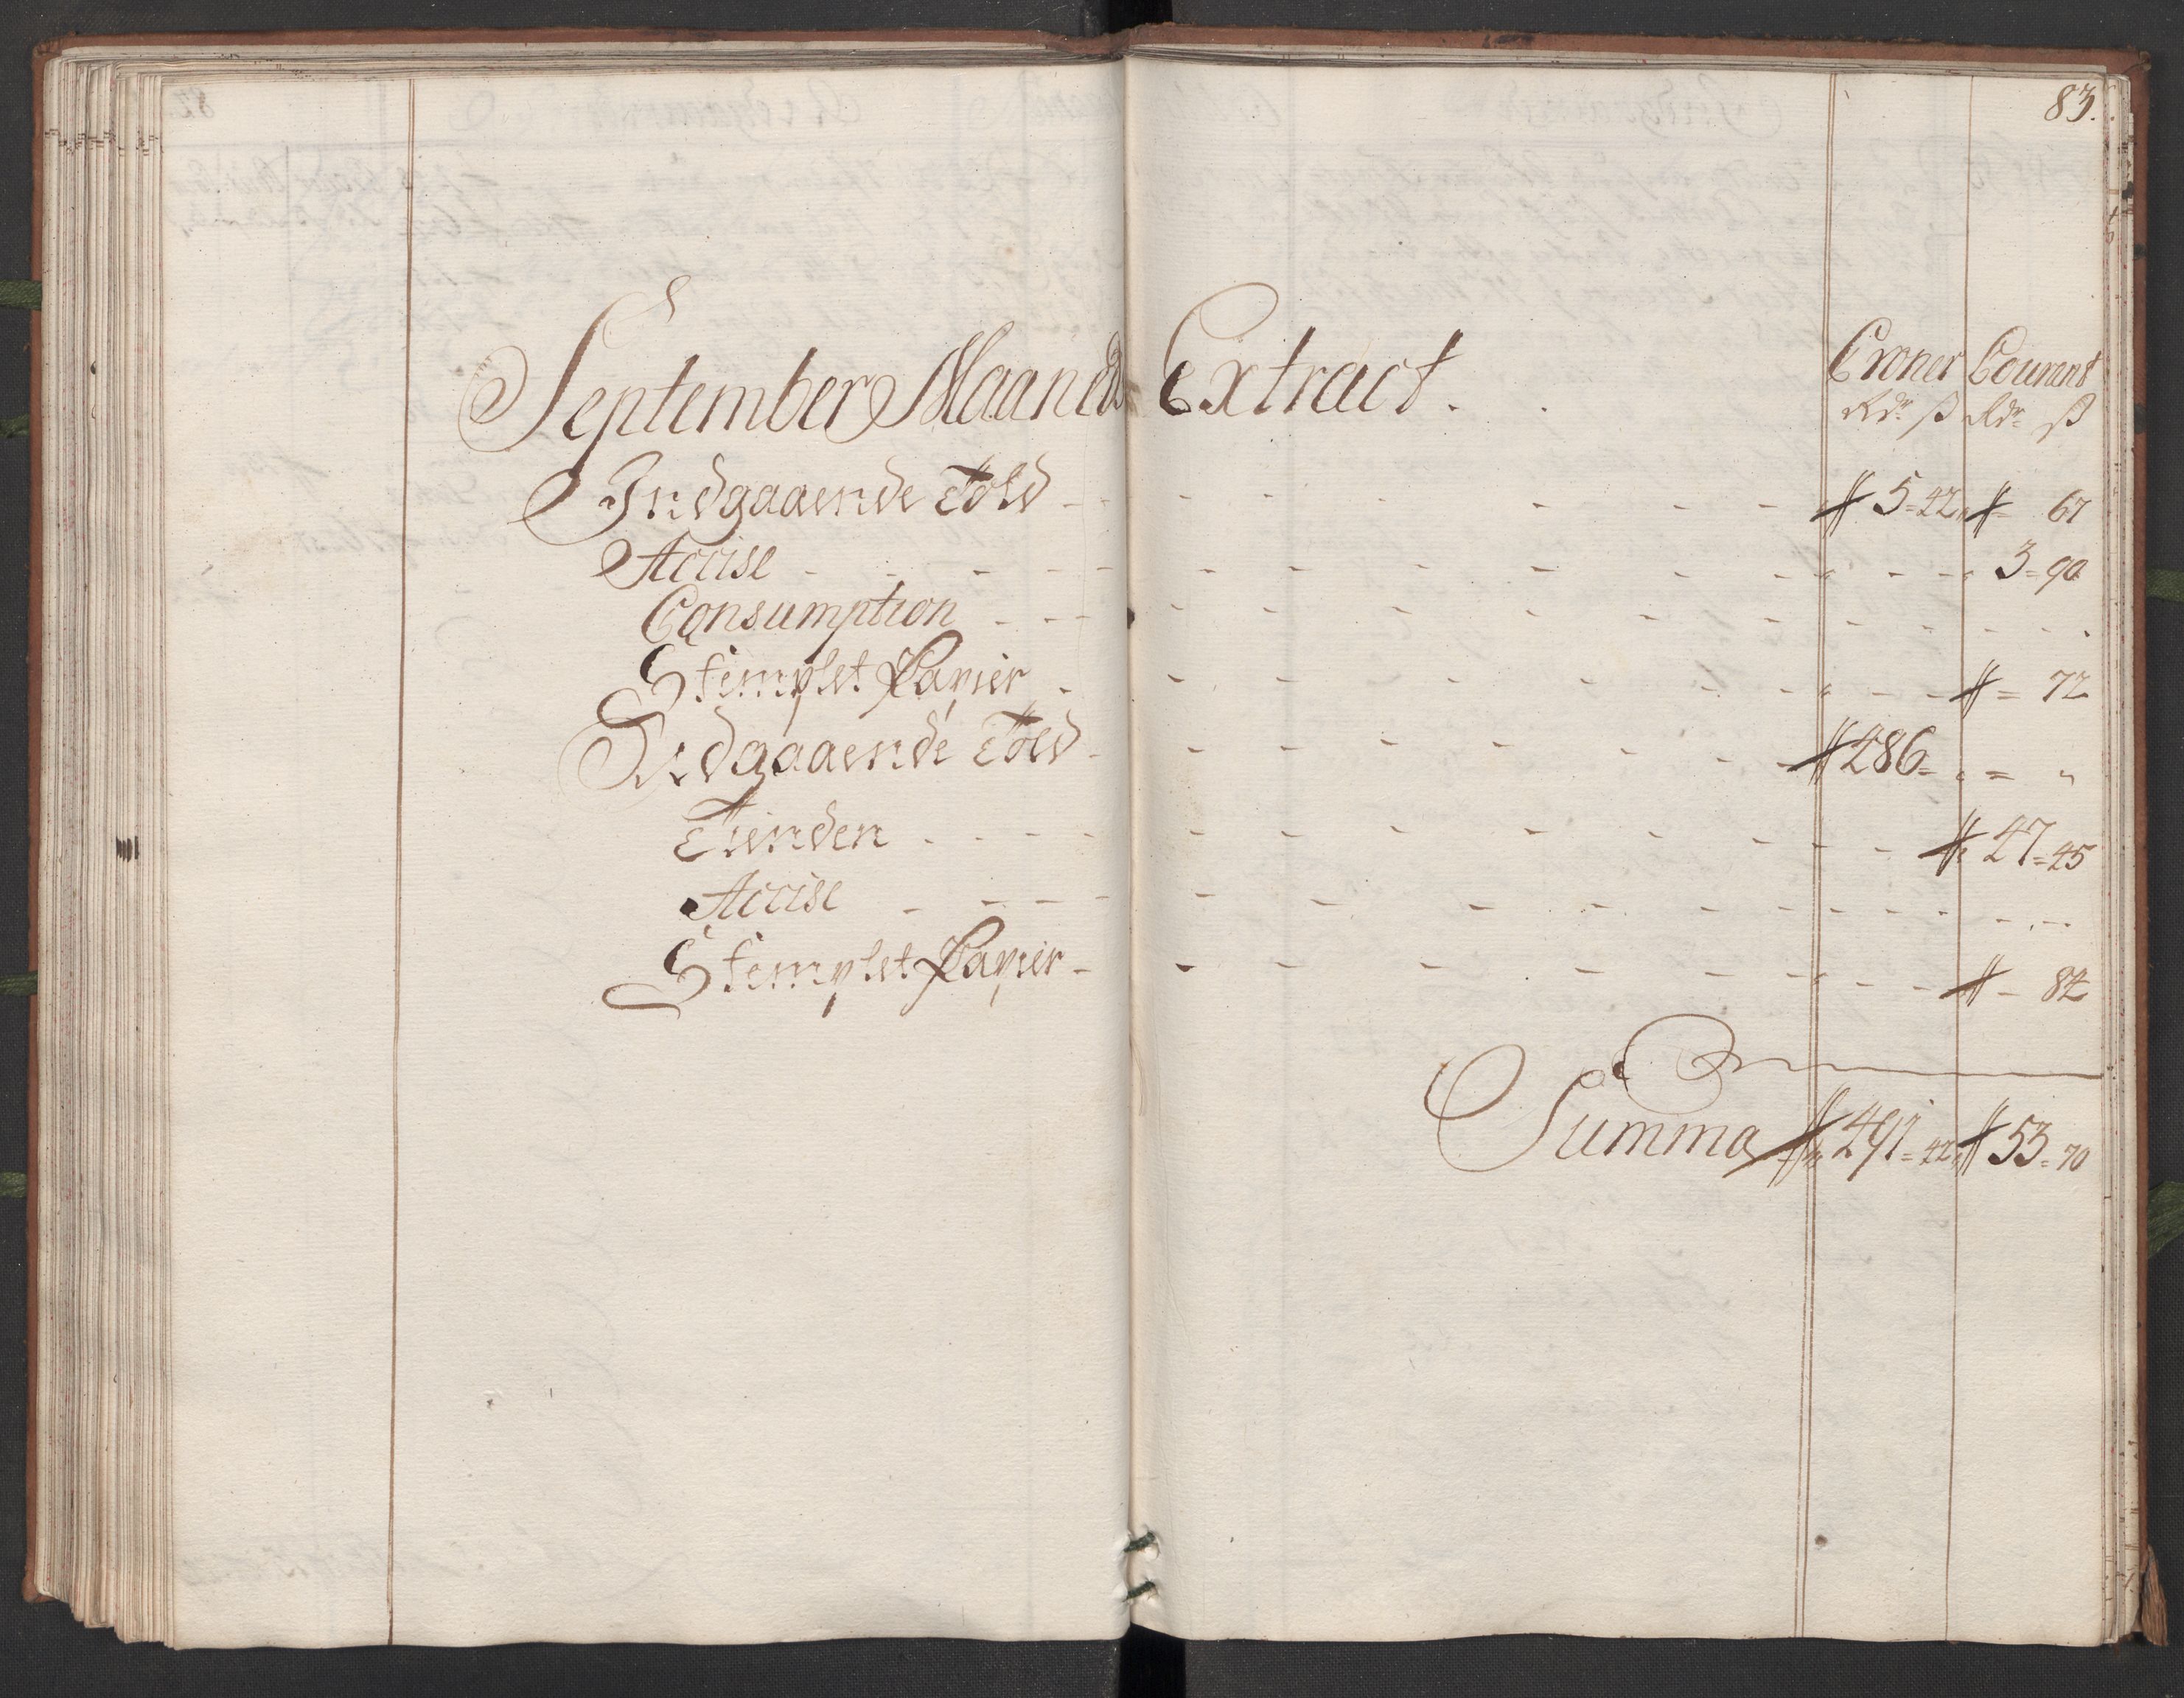 83.
September Maaneds Extract.
Croner Courant
Rdr ß Rdr ß
Indgaaende Told - - - 5=42 = 67
Accise - - - 3=90
Consumption - - -
Stemplet Papier - - - = 72
Udgaaende Told - - - 286 = " = "
Tienden - - - 47=45
Accise - - -
Stemplet Papier - - - 84
Summa 291=42 53=70